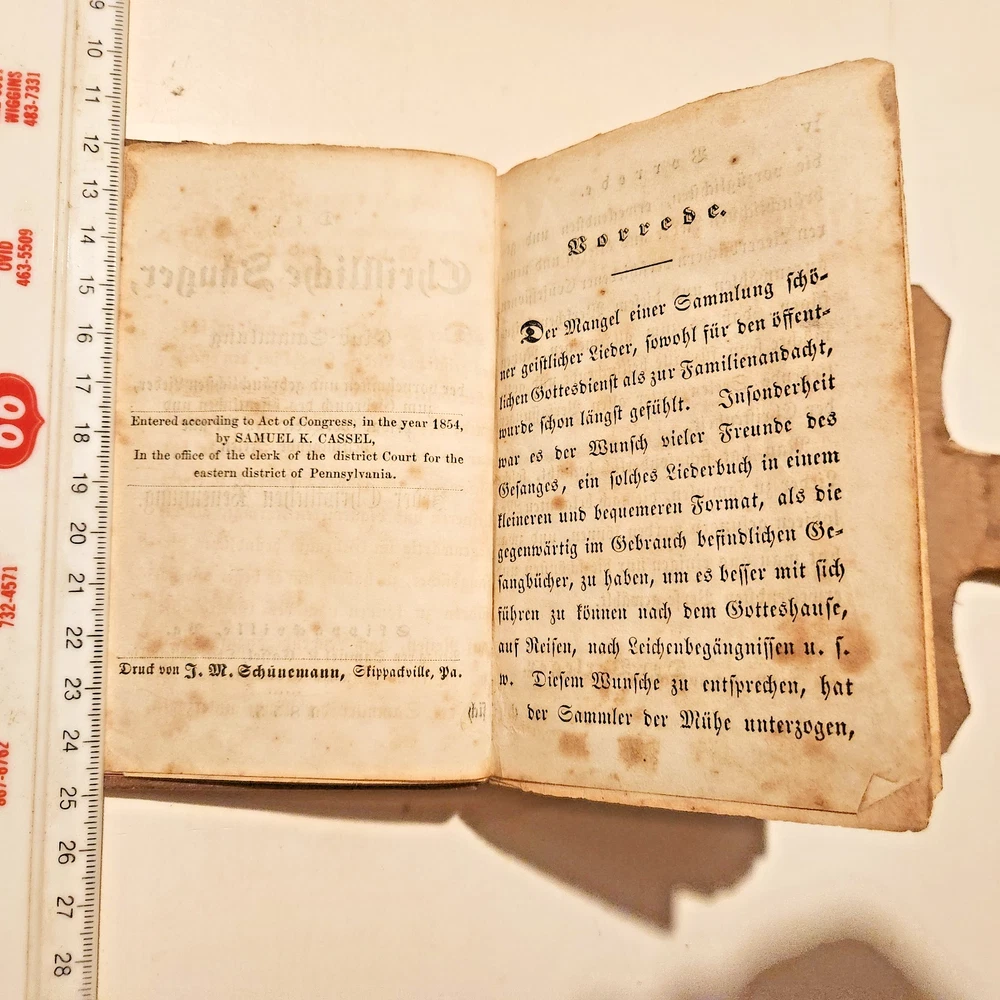 9
10
11
12
13
14
15
16
17
18
19
20
21
22
23
24
25
26
27
28
WIGGINS
483-7331
OVID
463-5509
66
732-4571
Entered according to Act of Congress, in the year 1854,
by SAMUEL K. CASSEL,
In the office of the clerk of the district Court for the
eastern district of Pennsylvania.
Druck von J. M. Schünemann, Skippackville, Pa.
Vorrede.
Der Mangel einer Sammlung schö-
ner geistlicher Lieder, sowohl für den öffent-
lichen Gottesdienst als zur Familienandacht,
wurde schon längst gefühlt. Insonderheit
war es der Wunsch vieler Freunde des
Gesanges, ein solches Liederbuch in einem
kleineren und bequemeren Format, als die
gegenwärtig im Gebrauch befindlichen Ge-
sangbücher, zu haben, um es besser mit sich
führen zu können nach dem Gotteshause,
auf Reisen, nach Leichenbegängnissen u. s.
w. Diesem Wunsche zu entsprechen, hat
der Sammler der Mühe unterzogen,